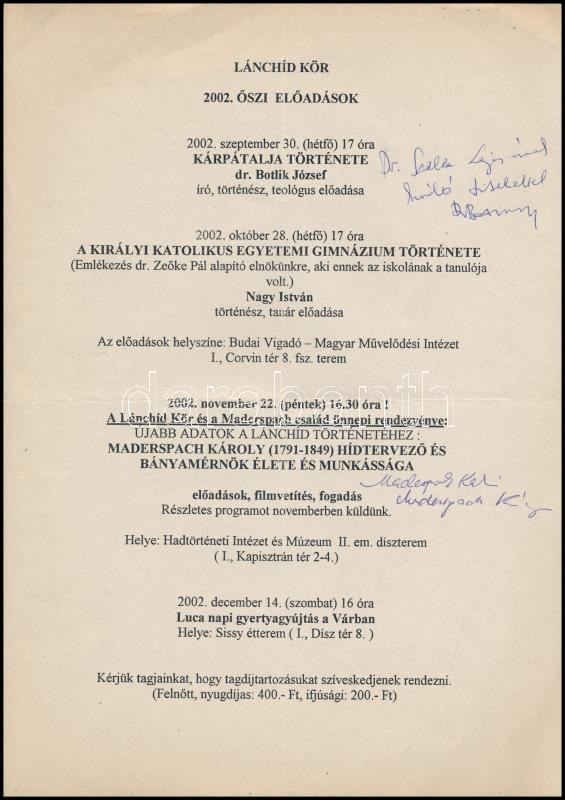 LÁNCHÍD KÖR
2002. ŐSZI ELŐADÁSOK
2002. szeptember 30. (hétfő) 17 óra
KÁRPÁTALJA TÖRTÉNETE
dr. Botlik József
író, történész, teológus előadása
Dr.
2002. október 28. (hétfő) 17 óra
A KIRÁLYI KATOLIKUS EGYETEMI GIMNÁZIUM TÖRTÉNETE
(Emlékezés dr. Zeőke Pál alapító elnökünkre, aki ennek az iskolának a tanulója
volt.)
Nagy István
történész, tanár előadása
Az előadások helyszíne: Budai Vigadó – Magyar Művelődési Intézet
I., Corvin tér 8. fsz. terem
darabanth
2002. november 22. (péntek) 16.30 óra !
A Lánchíd Kör és a Maderspach család ünnepi rendezvénye:
ÚJABB ADATOK A LÁNCHÍD TÖRTÉNETÉHEZ :
MADERSPACH KÁROLY (1791-1849) HÍDTERVEZŐ ÉS
BÁNYAMÉRNÖK ÉLETE ÉS MUNKÁSSÁGA
Maderspach
Maderspach
előadások, filmvetítés, fogadás
Részletes programot novemberben küldünk.
Helye: Hadtörténeti Intézet és Múzeum II. em. díszterem
( I., Kapisztrán tér 2-4.)
2002. december 14. (szombat) 16 óra
Luca napi gyertyagyújtás a Várban
Helye: Sissy étterem ( I., Dísz tér 8. )
Kérjük tagjainkat, hogy tagdíjtartozásukat szíveskedjenek rendezni.
(Felnőtt, nyugdíjas: 400.- Ft, ifjúsági: 200.- Ft)